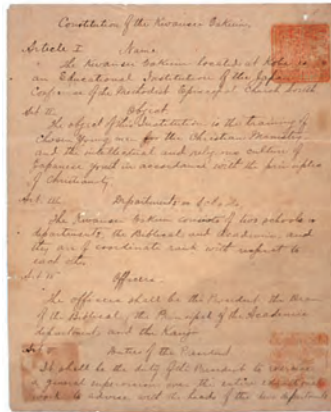 Constitution of the Kwansei Gakuin.
Article I Name
The Kwansei Gakuin located at Kobe is
an Educational Institution of the Japan
Conference of the Methodist Episcopal Church South
Art II Object
The object of this Institution is the training of
Chosen Young men for the Christian Ministry
and the intellectual and religious culture of
Japanese youth in accordance with the principles
of Christianity
Art. III Departments or Schools.
The Kwansei Gakuin consists of two schools or
departments, the Biblical and Academic, and
they are of coordinate rank with respect to
each other
Art IV Officers
The officers shall be the President, the Dean
of the Biblical, the Principal of the Academic
department, and the Kanji
Art Duties of the President
It shall be the duty of the President to exercise
a general supervision over the entire educational
work to advise with the heads of the two departments